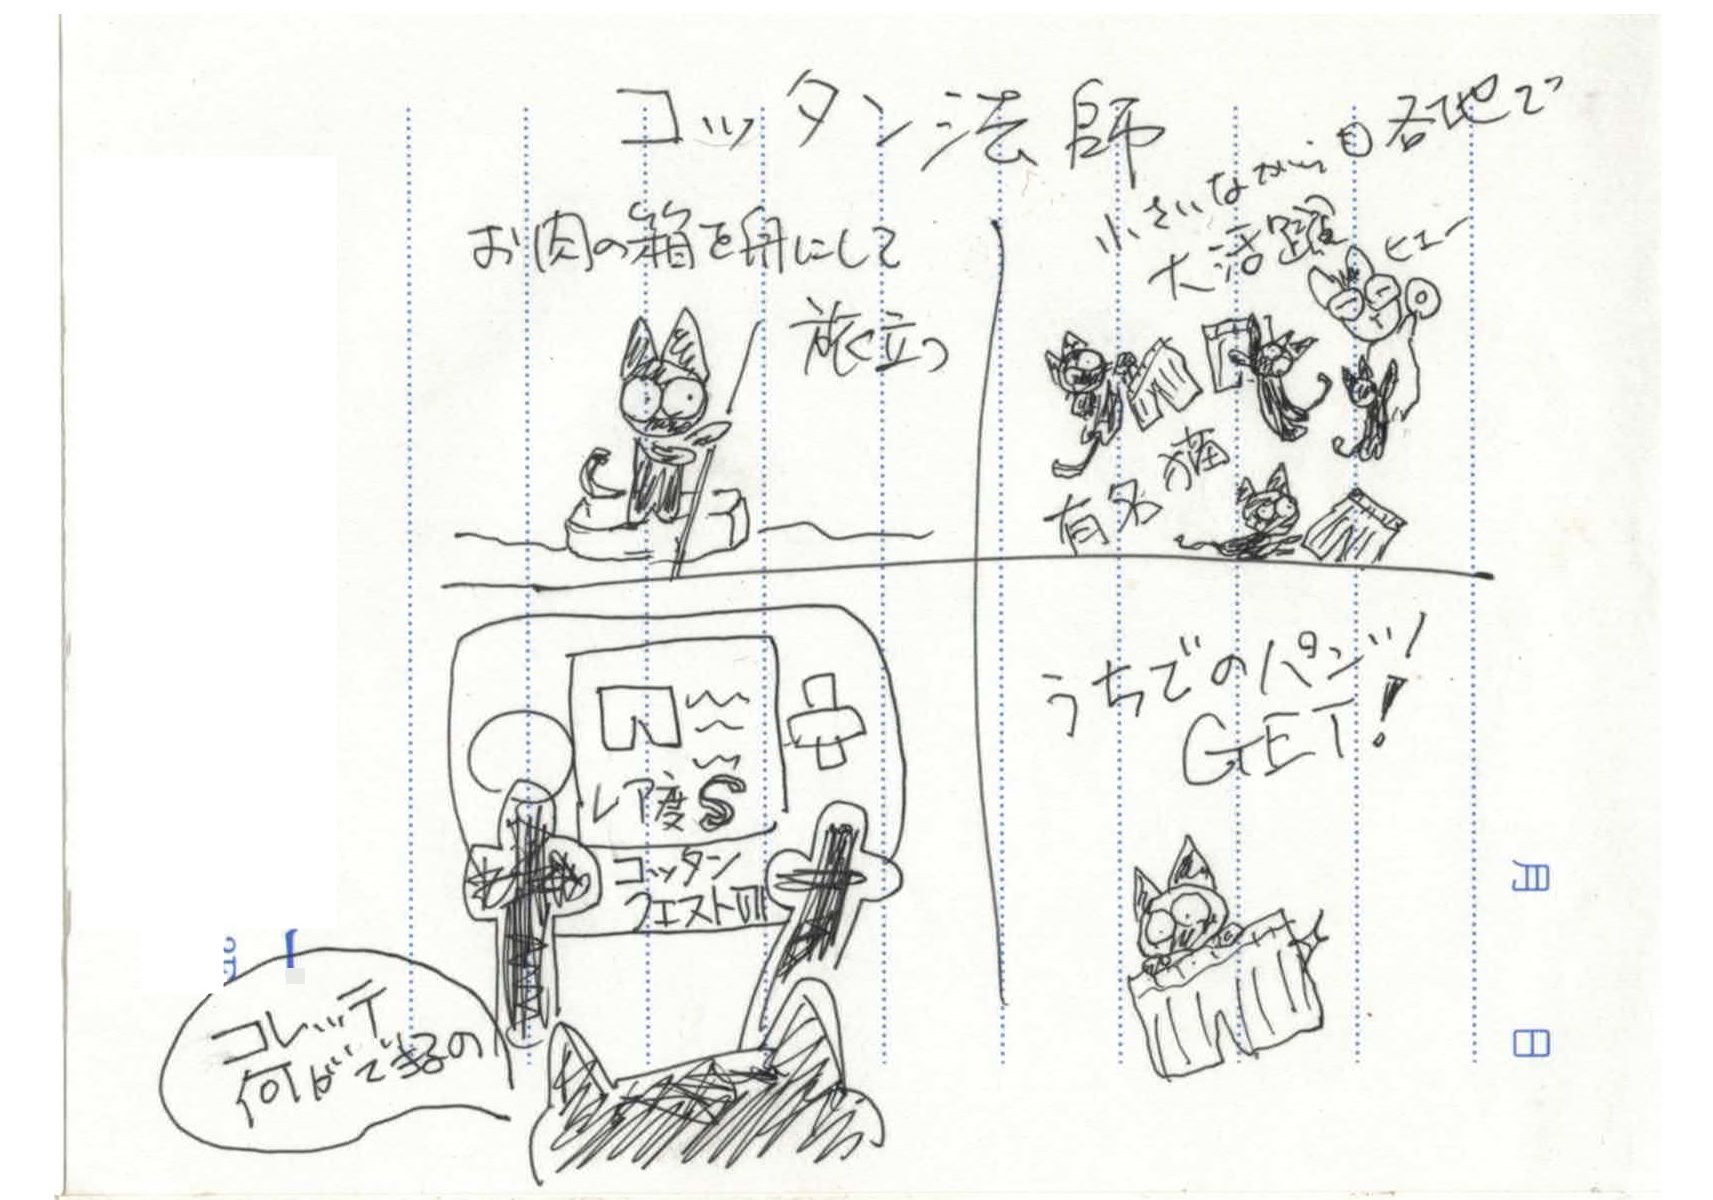 コッタン法師
お肉の箱を舟にして
旅立つ
小さいながらも各地で
大活躍
ヒュー
有名猫
うちでのパンツ!
GET!
レア度S
コッタン
クエストVIII
コレッテ
何ができるの
月
日